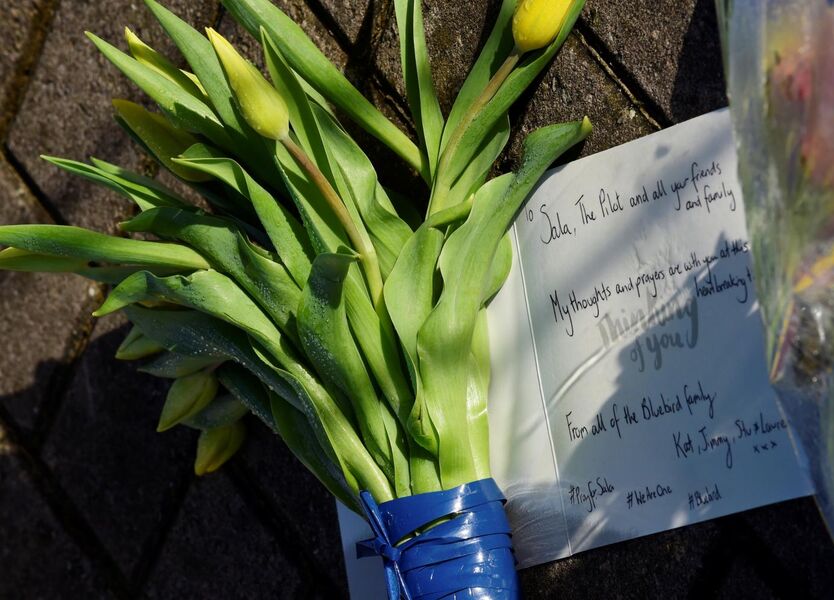 To Sala, The Pilot and all your friends
and family
My thoughts and prayers are with you at this
heartbreaking
Thinking
of you
From all of the Bluebird family
Kat, Jimmy, Stu + Laure
x x x
#PrayforSala #WeAreOne #Bluebird